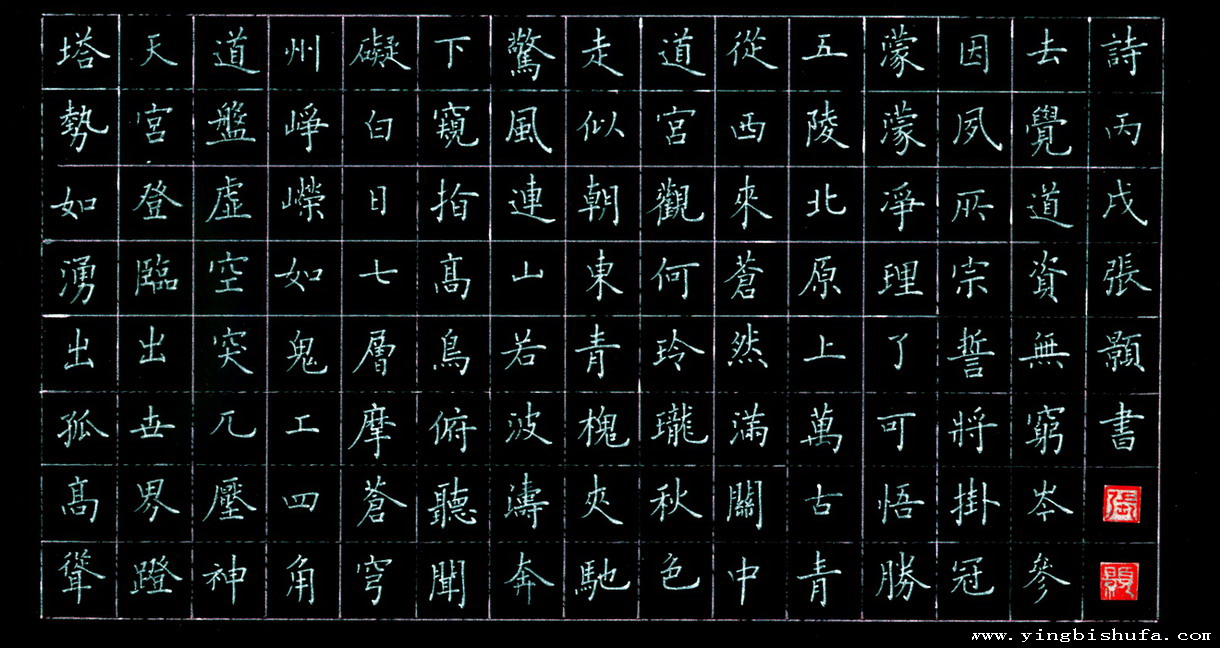 塔勢如湧出孤髙聳
天宮登臨出世界蹬
道盤虛空突兀壓神
州崢嶸如鬼工四角
礙白日七層摩蒼穹
下窺指髙鳥俯聽聞
驚風連山若波濤奔
走似朝東青槐夾馳
道宮觀何玲瓏秋色
從西來蒼然滿關中
五陵北原上萬古青
濛濛凈理了可悟勝
因夙所宗誓將掛冠
去覺道資無窮岑參
詩丙戌張顥書
張
顥
www.yingbishufa.com